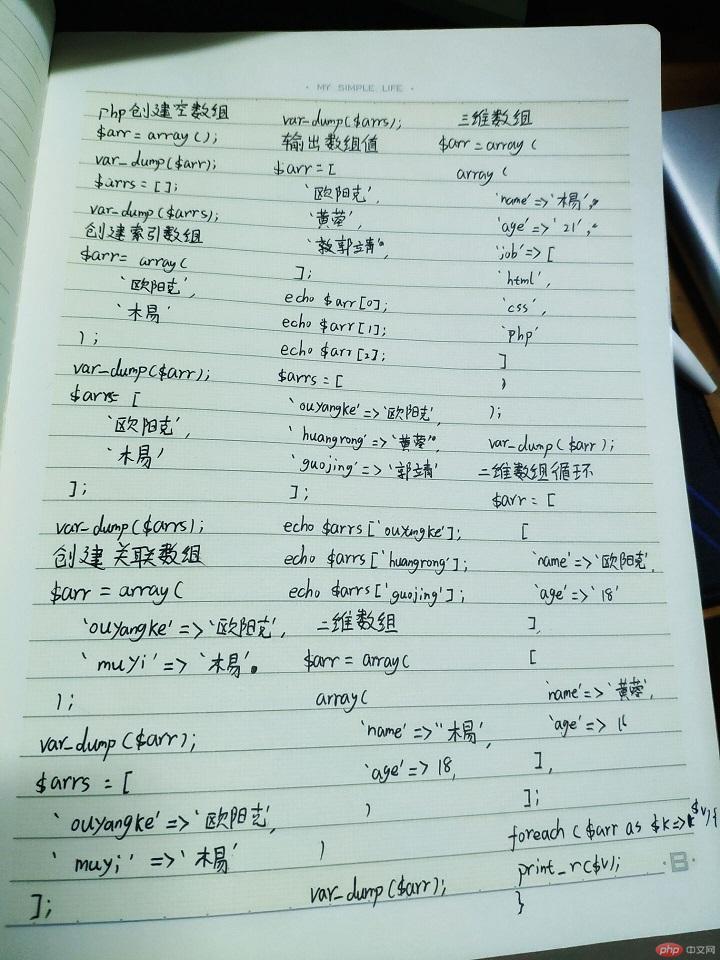 MY SIMPLE LIFE
php创建空数组
$arr = array();
var_dump($arr);
$arrs = [];
var_dump($arrs);
创建索引数组
$arr = array(
'欧阳克',
'木易'
);
var_dump($arr);
$arrs = [
'欧阳克',
'木易'
];
var_dump($arrs);
创建关联数组
$arr = array(
'ouyangke' => '欧阳克',
'muyi' => '木易'.
);
var_dump($arr);
$arrs = [
'ouyangke' => '欧阳克',
'muyi' => '木易'
];
var_dump($arrs);
输出数组值
$arr = [
'欧阳克',
'黄蓉',
'郭靖',
];
echo $arr[0];
echo $arr[1];
echo $arr[2];
$arrs = [
'ouyangke' => '欧阳克',
'huangrong' => '黄蓉',
'guojing' => '郭靖'
];
echo $arrs['ouyangke'];
echo $arrs['huangrong'];
echo $arrs['guojing'];
二维数组
$arr = array(
array(
'name' => '木易',
'age' => 18,
)
)
var_dump($arr);
三维数组
$arr = array(
array(
'name' => '木易',
'age' => '21',
'job' => [
'html',
'css',
'php'
]
)
);
var_dump($arr);
二维数组循环
$arr = [
[
'name' => '欧阳克',
'age' => '18'
],
[
'name' => '黄蓉',
'age' => 16
],
];
foreach ($arr as $k => $v) {
print_r($v);
}
B
php 中文网